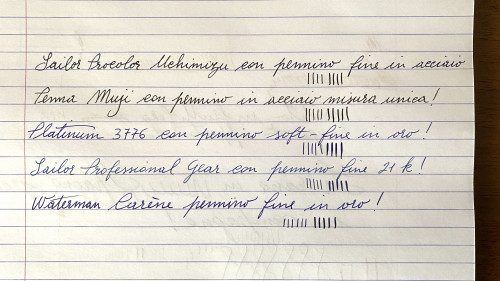 Sailor Procolor Uchimizu con pennino fine in acciaio
Penna Muji con pennino in acciaio misura unica!
Platinum 3776 con pennino soft-fine in oro!
Sailor Professional Gear con pennino fine 21 k!
Waterman Carène pennino fine in oro!